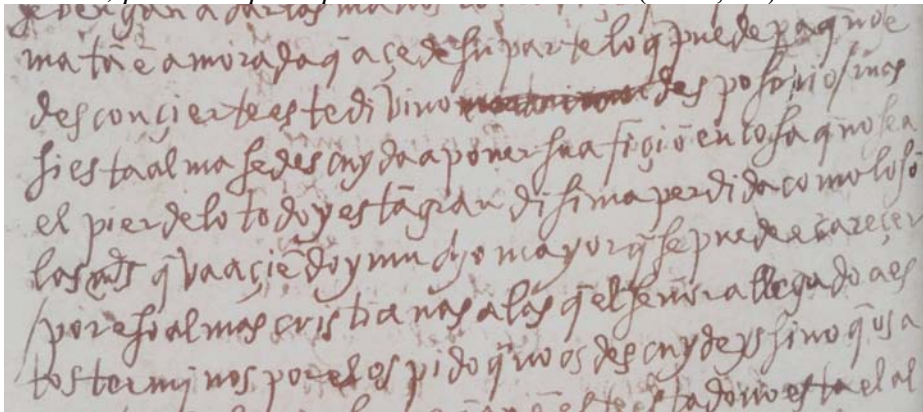 se vengan a dar las manos
ma tā ē amorada q̄ açe de su parte lo q̄ puede pa q̄ no se
desconçierte este divino desposorio / mas
si esta alma se descuyda a poner su afiçiō en cosa q̄ no sea
el pierdelo todo y es tā grandisima perdida como lo sō
las mds q̄ va açiēdo y mucho mayor q̄ se puede ēcareçer
/ por eso almas cristianas a las q̄ el señor a llegado a es
tos terminos por el os pido q̄ no os descuydeys sino q̄ os a
tado no esta el al